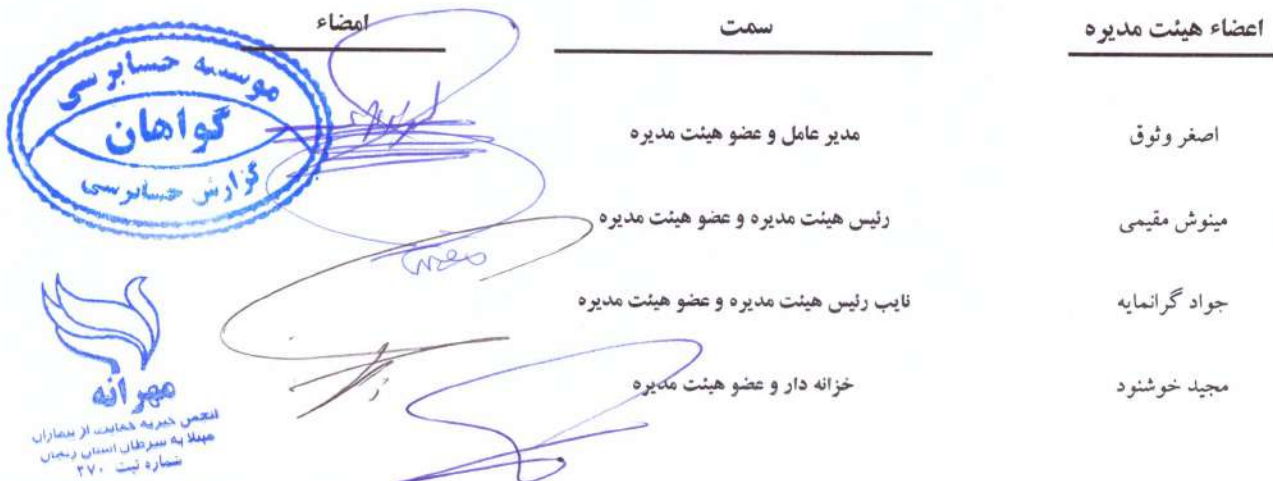 اعضاء هیئت مدیره سمت امضاء
اصغر وثوق مدیر عامل و عضو هیئت مدیره
مینوش مقیمی رئیس هیئت مدیره و عضو هیئت مدیره
جواد گرانمایه نایب رئیس هیئت مدیره و عضو هیئت مدیره
مجید خوشنود خزانه دار و عضو هیئت مدیره
موسسه حسابرسی
گواهان
گزارش حسابرسی
مهرانه
انجمن خیریه حمایت از بیماران
مبتلا به سرطان استان زنجان
شماره ثبت ۲۷۰